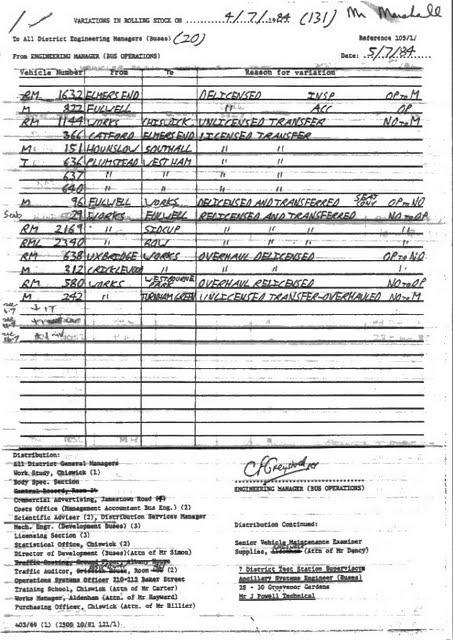 VARIATIONS IN ROLLING STOCK ON 4/7/1984 (131) Mr Marshall
To All District Engineering Managers (Buses) (20) Reference 105/1/
From ENGINEERING MANAGER (BUS OPERATIONS) Date: 5/7/84
Vehicle Number From To Reason for variation
RM 1632 ELMERS END DELICENSED INSP OP TO M
M 822 FULWELL " ACC OP
RM 1144 WORKS CHISWICK UNLICENSED TRANSFER NO TO M
366 CATFORD ELMERS END LICENSED TRANSFER
M 151 HOUNSLOW SOUTHALL " "
T 636 PLUMSTEAD WEST HAM " "
637 " " " "
640 " " " "
M 96 FULWELL WORKS DELICENSED AND TRANSFERRED SEAT CONV OP TO NO
29 WORKS FULWELL RELICENSED AND TRANSFERRED NO TO OP
RM 2169 " SIDCUP " " " "
RML 2340 " BOW " " " "
RM 638 UXBRIDGE WORKS OVERHAUL DELICENSED OP TO NO
M 312 CRICKLEWOOD " " " "
RM 580 WORKS WESTBOURNE PARK OVERHAUL RELICENSED NO TO OP
M 242 " TURNHAM GREEN UNLICENSED TRANSFER-OVERHAULED NO TO M
Distribution:
All District General Managers
Work Study, Chiswick (1)
Body Spec. Section
General Record, Room 24
Commercial Advertising, Jamestown Road
Costs Office (Management Accountant Bus Eng.) (2)
Scientific Adviser (2), Distribution Services Manager
Mech. Engr. (Development Buses) (3)
Licensing Section (3)
Statistical Office, Chiswick (2)
Director of Development (Buses)(Attn Mr Simon)
Traffic Auditor, Room (1)
Operations Systems Officer 210-212 Baker Street
Training School, Chiswick (Attn Mr Carter)
Works Manager, Aldenham (Attn of Mr Hayward)
Purchasing Officer, Chiswick (Attn of Mr Hillier)
ENGINEERING MANAGER (BUS OPERATIONS)
Distribution Continued:
Senior Vehicle Maintenance Examiner
Supplies, Aldenham (Attn of Mr Dancy)
7 District Test Station Supervisors
Ancillary Systems Engineer (Buses)
28 - 30 Grosvenor Gardens
Mr J Powell Technical
403/69 (1) (2500 10/81 121/1)